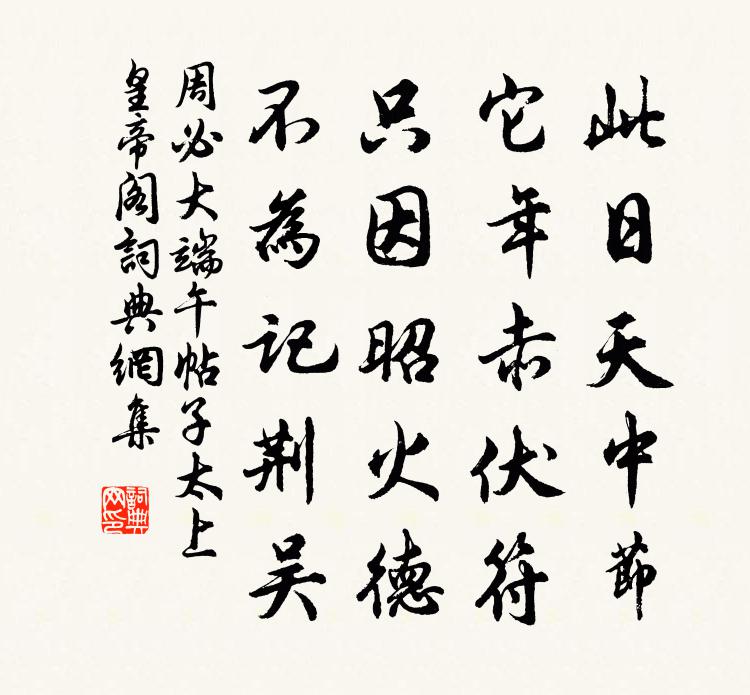 此日天中節
它年赤伏符
只因昭火德
不為記荆吴
周必大端午帖子太上
皇帝閣詞典網集
詞典网印